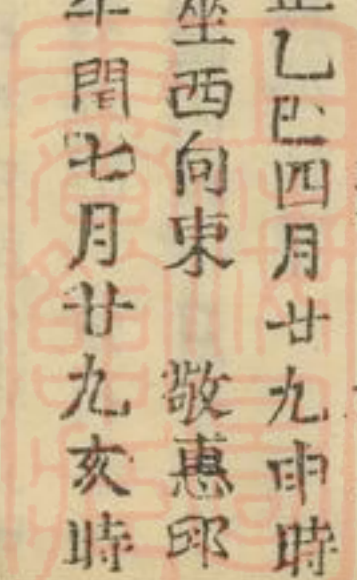 乙巳四月廿九申時
坐西向東　敬惠邱
年閏七月廿九亥時